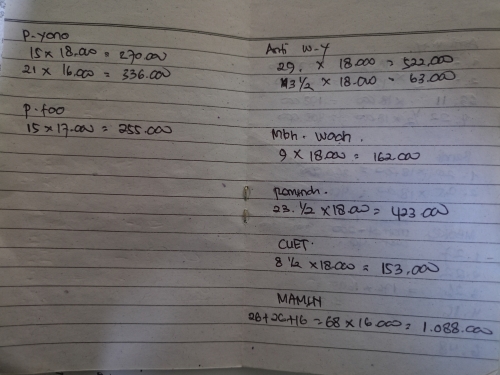 P-yono
15 x 18.000 = 270.000
21 x 16.000 = 336.000
P.foo
15 x 17.000 = 255.000
Anti W-Y
29. x 18.000 = 522.000
3 1/2 x 18.000 = 63.000
Mbh. waah.
9 x 18.000 = 162.000
23. 1/2 x 18.000 = 423.000
CUET.
8 1/2 x 18.000 = 153.000
26+26+16 = 68 x 16.000 = 1.088.000